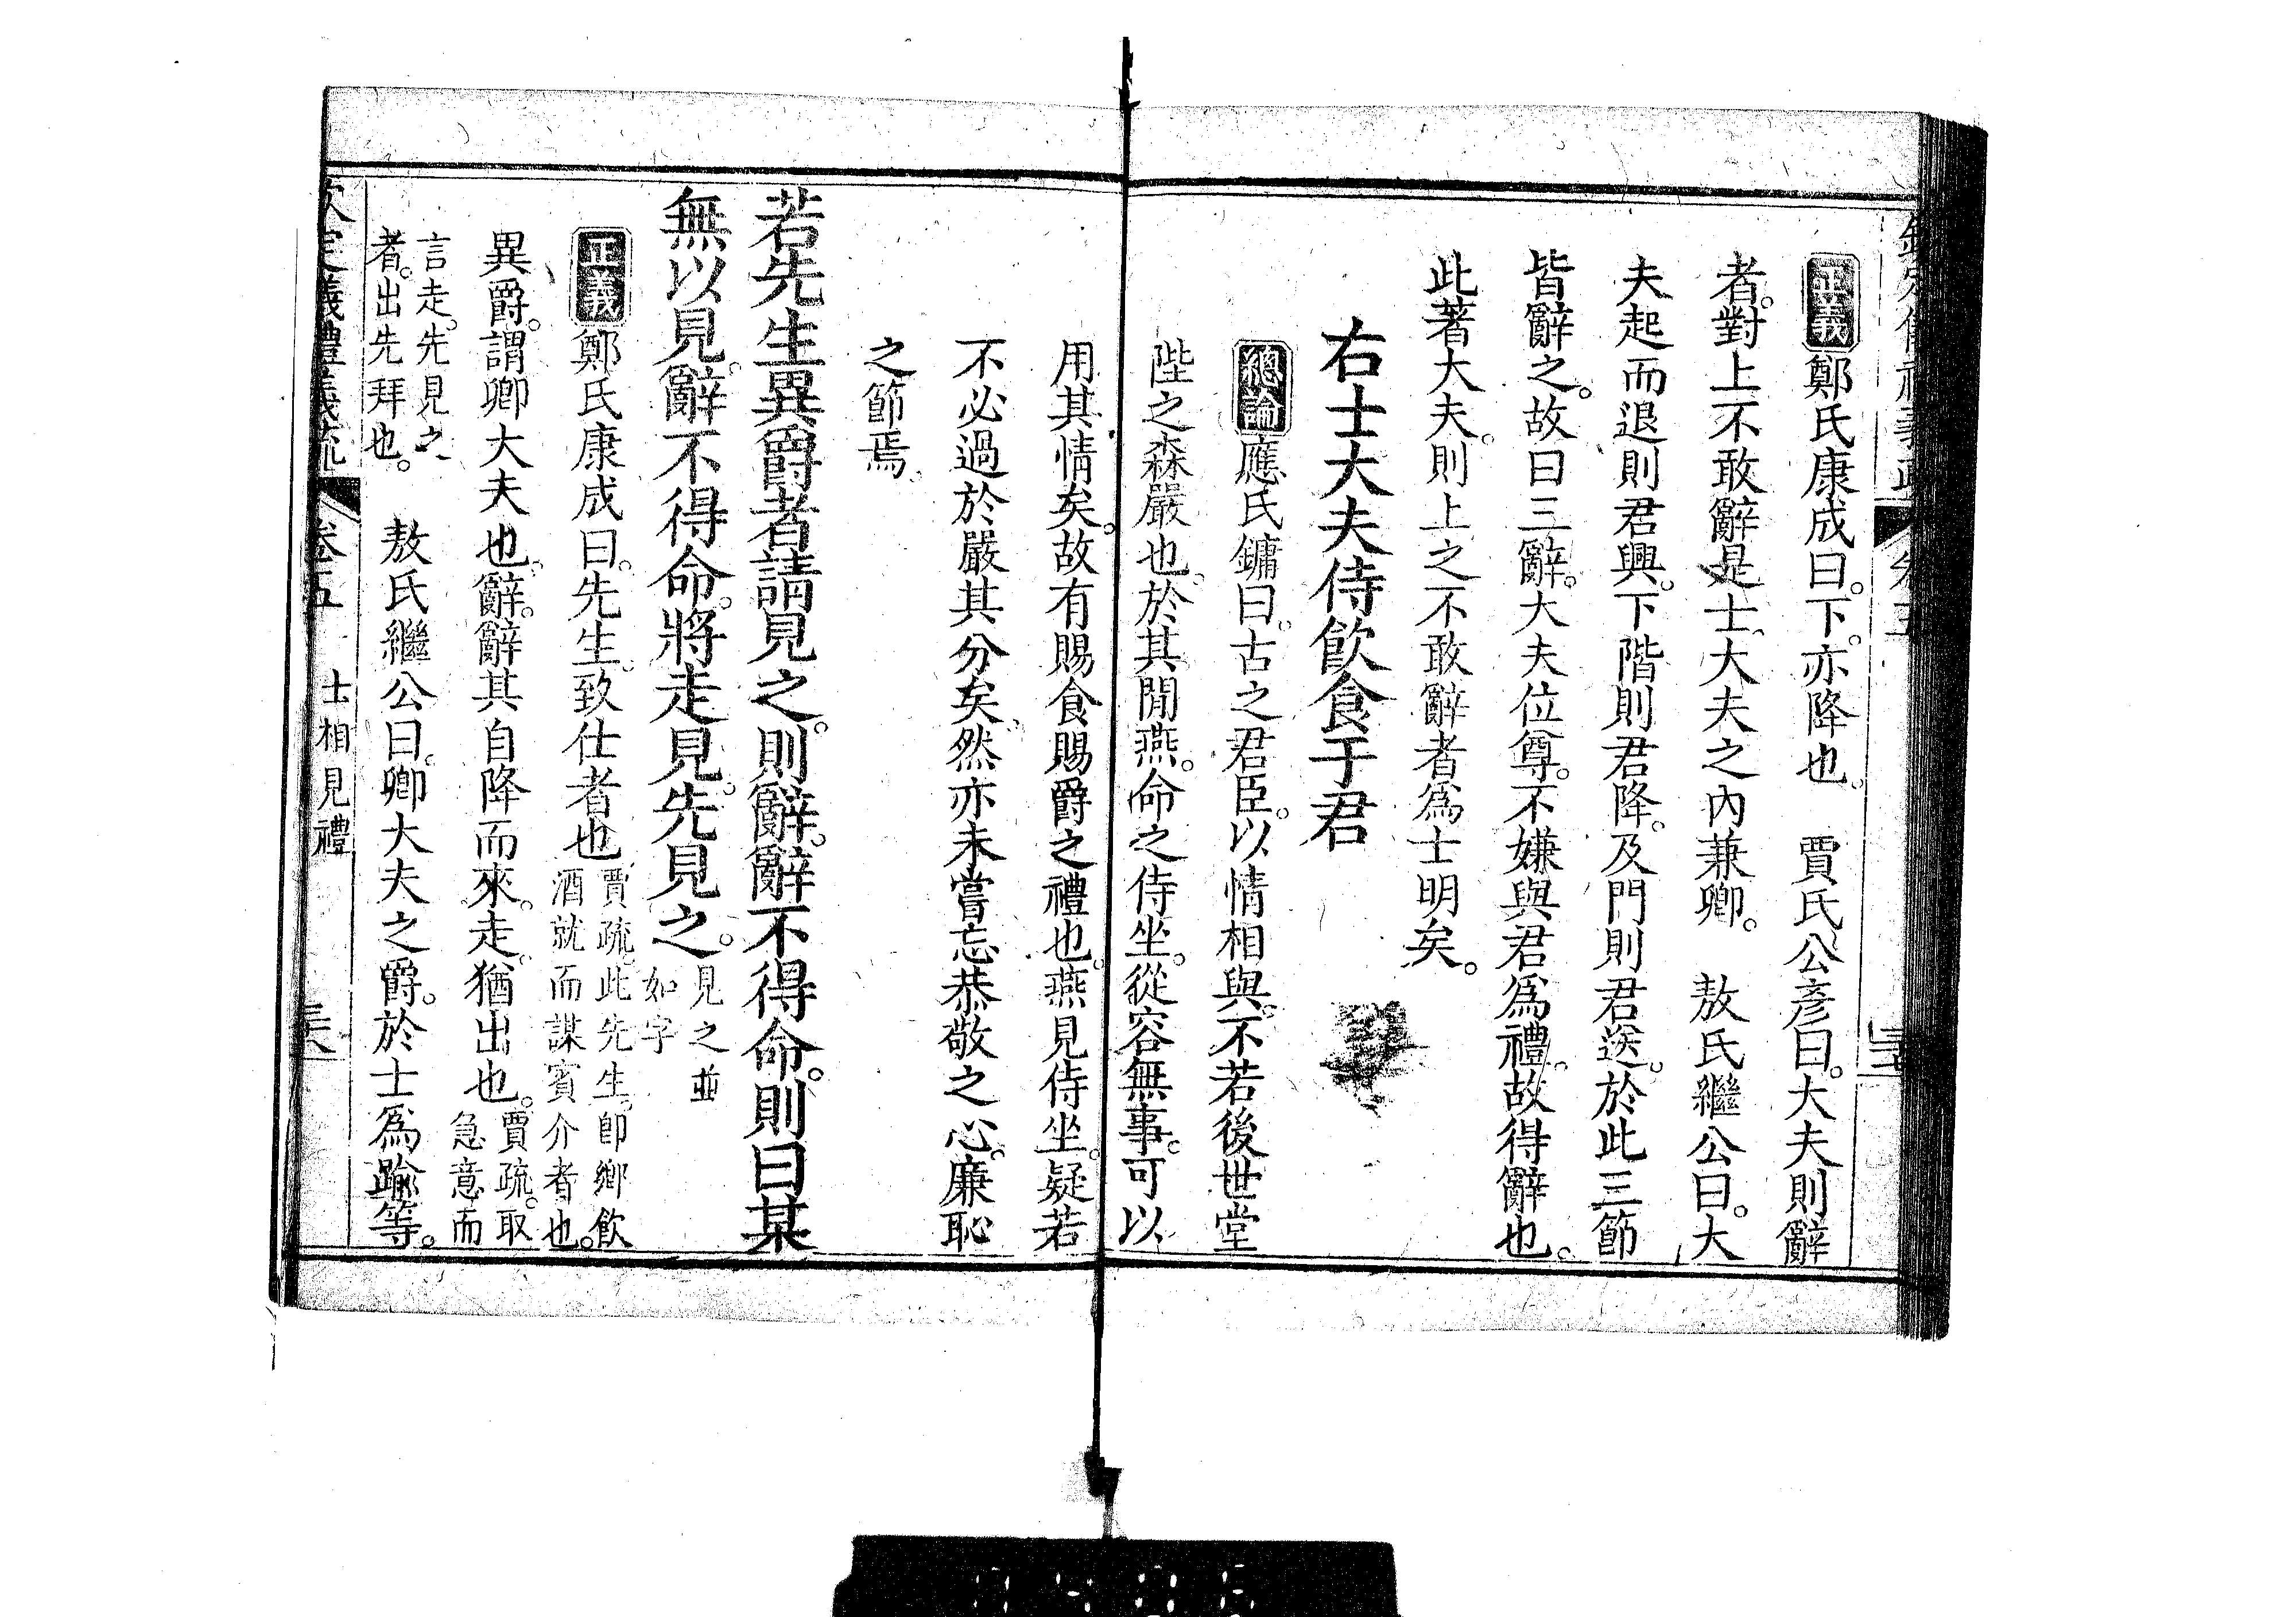 正義鄭氏康成曰。下。亦降也。　賈氏公彥曰。大夫則辭
者。對上不敢辭是士。大夫之內兼卿。　敖氏繼公曰。大
夫起而退則君興。下階則君降。及門則君送。於此三節
皆辭之。故曰三辭。大夫位尊。不嫌與君爲禮。故得辭也。
此著大夫。則上之不敢辭者爲士明矣。
右士大夫侍飲食于君
總論應氏鏞曰。古之君臣。以情相與。不若後世堂
陛之森嚴也。於其閒燕。命之侍坐。從容無事。可以
用其情矣。故有賜食賜爵之禮也。燕見侍坐。疑若
不必過於嚴其分矣。然亦未嘗忘恭敬之心。廉恥
之節焉。
若先生異爵者請見之。則辭。辭不得命。則曰某
無以見。辭不得命。將走見。先見之。見之並如字
正義鄭氏康成曰。先生。致仕者也賈疏。此先生。卽鄉飲酒就而謀賓介者也。
異爵。謂卿大夫也。辭。辭其自降而來。走。猶出也。賈疏。取急意而
言走。先見之者。出先拜也。　敖氏繼公曰。卿大夫之爵。於士爲踰等。
欽定儀禮義疏　卷五　士相見禮　三六